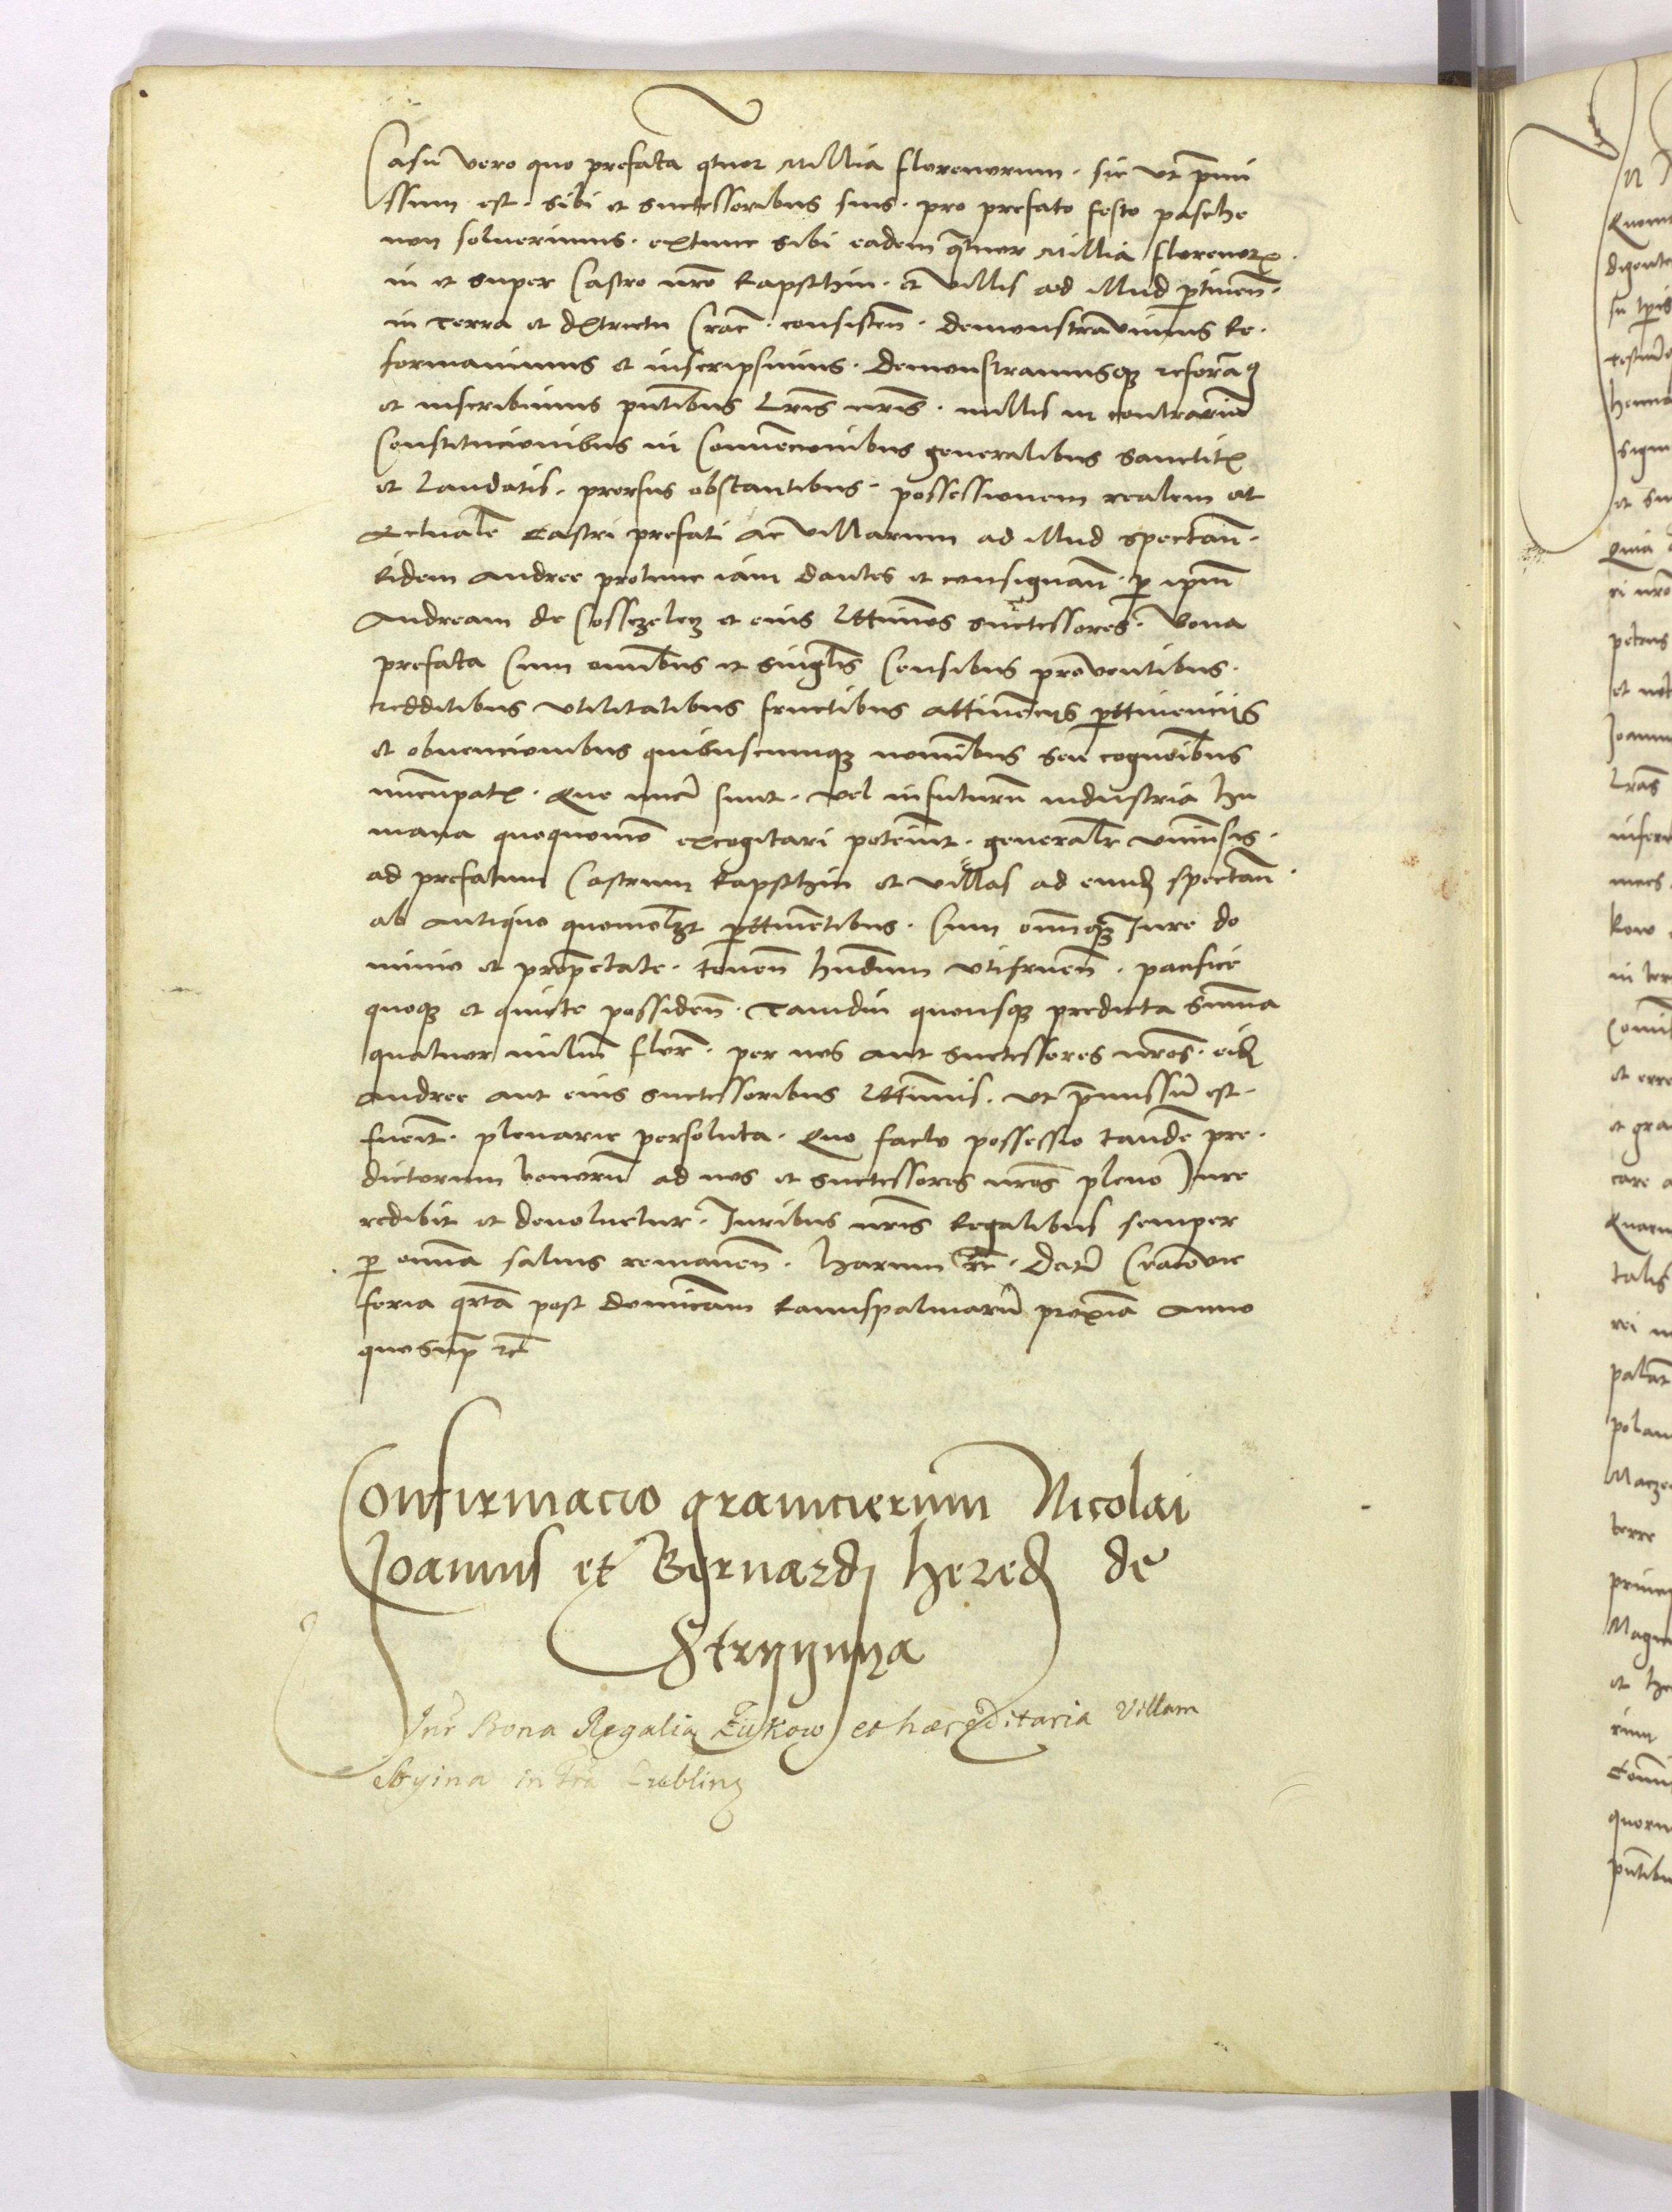 Casu vero quo prefata qtuor Millia florenorum. sic ut premi
ssum est. sibi et successoribus suis. pro prefato festo pasche
non solverimus. extunc sibi eadem qtuor Millia florenorꝝ.
in et super Castro nro Rapsthin. et villis ad illud ptinen.
in terra et dxtrictu Crac. consisten. demonstravimus Re.
formavimus et inscripsimus. demonstramusqꝫ reforamꝰ
et inscribimus pntibus lris nris. nullis in contrariũ
Constitucionibus in Convencionibus generalibus sanctitꝭ
et laudatis. prorsus obstantibus. possessionem realem et
Actualē Castri prefati ac villarum ad illud spectan.
Eidem Andree protunc iam dantes et consignan. ꝑ ipm
Andream de Cosszczelecz et eius lttimos successores. bona
prefata Cum omibus et singlis Censibus proventibus.
redditibus utilitatibus fructibus attinēcijs ꝑttinencijs
et obvencionibus quibuscumqꝫ nominibus seu cognoibus
nuncupatꝭ. Que nunc sunt. vel in futurũ industria hu
mana quoquomo excogitari poterint. generalr universis.
ad prefatum Castrum Rapsthin et villas ad eund spectan.
ab antiquo quomolꝫt ꝑttinētibus. Cum omiqꝫ Jure do
minio et proprietate. tenen. hndum utifruen. pacifice
quoqꝫ et quiete possiden. Tamdiu quousqꝫ predicta summa
quatuor miliũ flor. per nos aut successores nros. eid
Andree aut eius successoribus lttimis. ut premissũ est.
fuerit. plenarie persoluta. Quo facto possessio tandē pre.
dictorum bonorũ ad nos et successores nros pleno Jure
redibit et devoluetur. Juribus nris Regalibus semper
ꝑ omnia salvis remanen. harum rc. Datũ Cracovie
feria qrta post dominicam Ramispalmarũ proximā Anno
quosupꝰ rc
Confirmacio granicierum Nicolai
Joannis et Bernardj hered de
Stryyyna
Int Bona Regalia Łukow et hæreditaria Villam
Stryina in Tra Lublinẽ